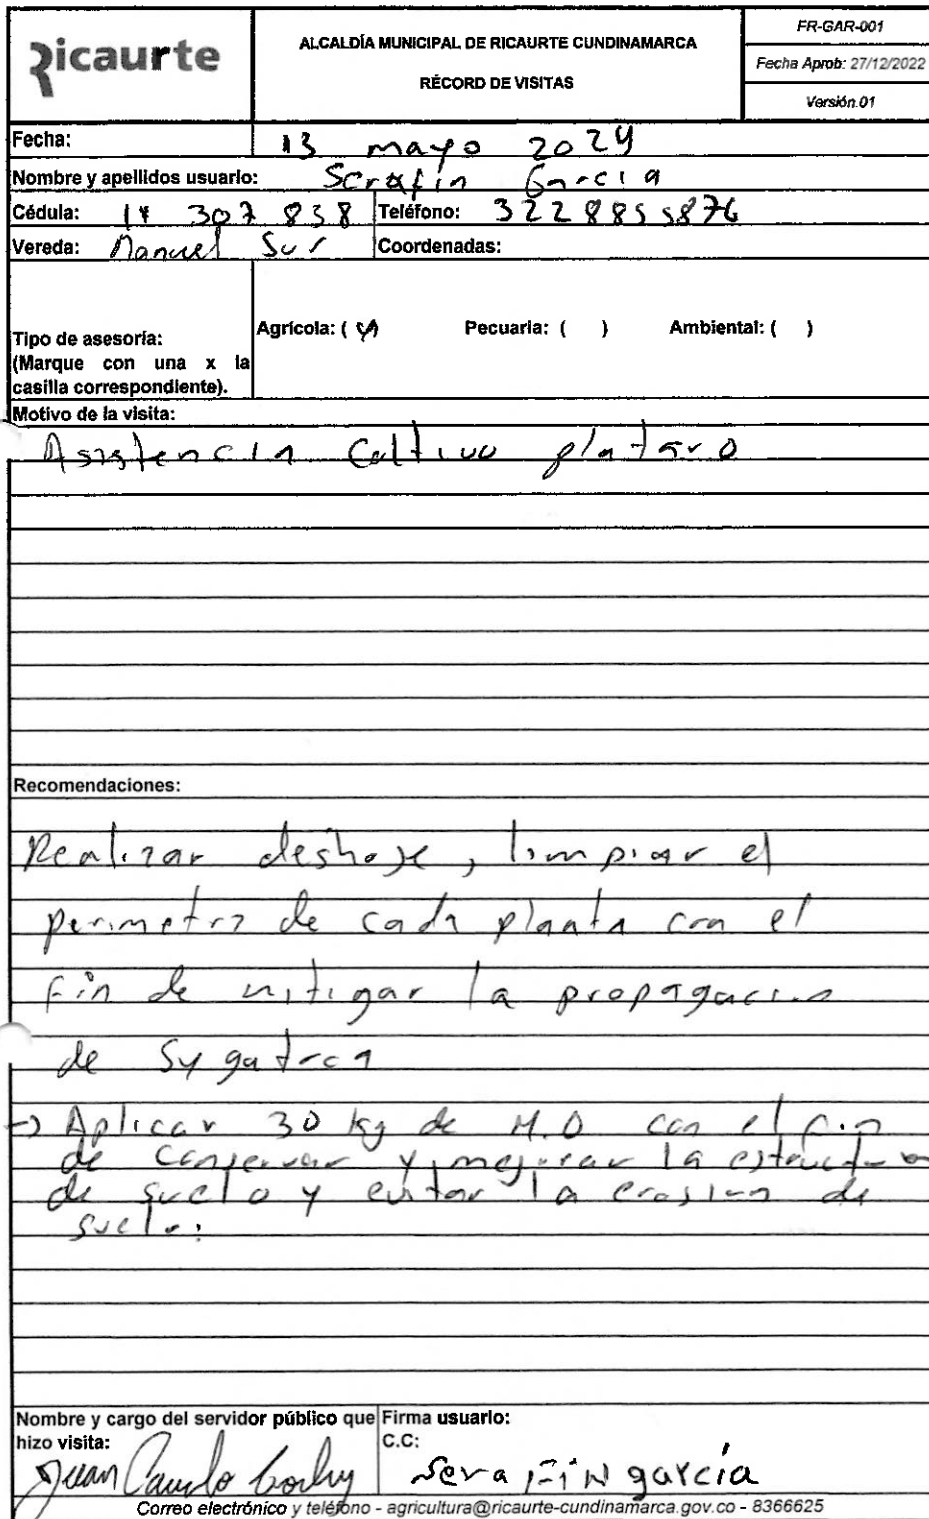 Ricaurte
ALCALDÍA MUNICIPAL DE RICAURTE CUNDINAMARCA
RÉCORD DE VISITAS
FR-GAR-001
Fecha Aprob: 27/12/2022
Versión.01
Fecha: 13 mayo 2024
Nombre y apellidos usuario: Serafin Garcia
Cédula: 307 838 Teléfono: 3228855876
Vereda: Manuel Sur Coordenadas:
Tipo de asesoría:
(Marque con una x la
casilla correspondiente).
Agrícola: ( x ) Pecuaria: ( ) Ambiental: ( )
Motivo de la visita:
Asistencia Cultivo platano
Recomendaciones:
Realizar deshoje, limpiar el
perimetro de cada planta con el
fin de mitigar la propagacion
de Sygatoca
-> Aplicar 30 kg de M.O con el fin
de conservar y mejorar la estructura
de suelo y evitar la erosion de
suelo.
Nombre y cargo del servidor público que
hizo visita:
Juan Camilo
Firma usuario:
C.C:
SeraFiN garcía
Correo electrónico y teléfono - agricultura@ricaurte-cundinamarca.gov.co - 8366625